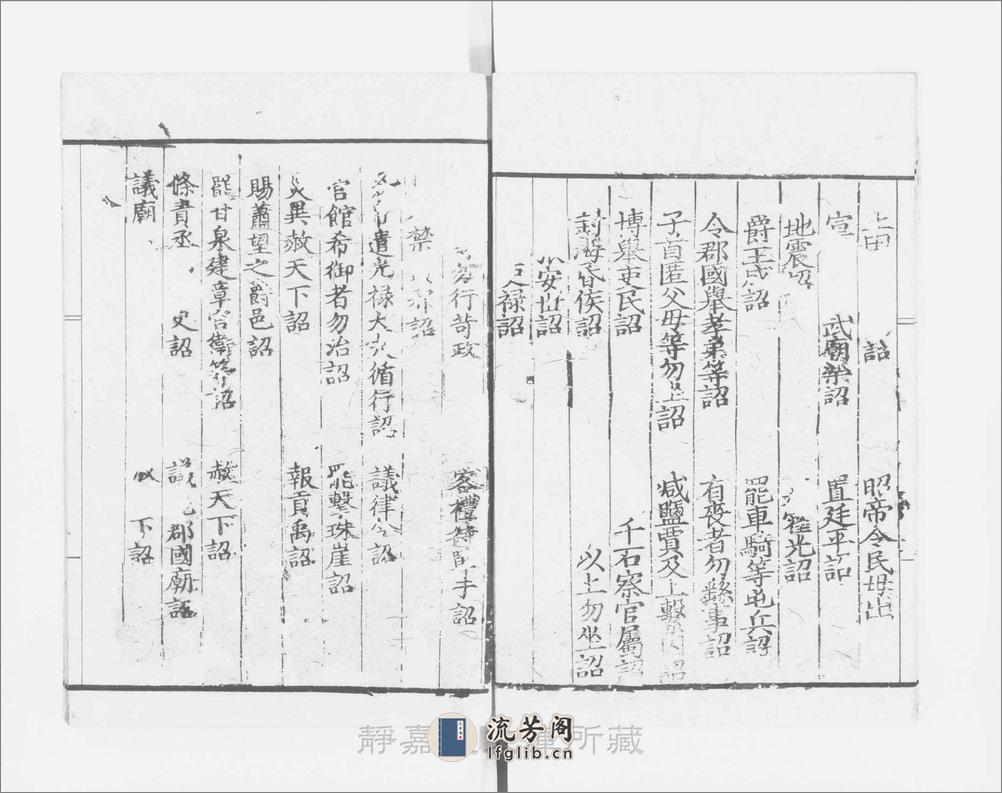 詔 昭帝令民毋出
宣 武廟樂詔 置廷平詔
地震詔 霍光詔
爵王成詔 罷車騎等屯兵詔
令郡國舉孝弟等詔 有喪者勿繇事詔
子首匿父母等勿坐詔 減鹽賈及上繫囚詔
博舉吏民詔 千石察官屬詔
封海昏侯詔 以上勿坐詔
安世詔
祿詔
行苛政 客禮待 于詔
禁 詔
遣光祿大夫循行詔 議律令詔
宮館希御者勿治詔 罷擊珠崖詔
災異赦天下詔 報貢禹詔
賜蕭望之爵邑詔
罷甘泉建章宮衛等詔 赦天下詔
條責丞 史詔 議 郡國廟詔
議廟 下詔
靜嘉 所藏
流芳阁
lfglib.cn